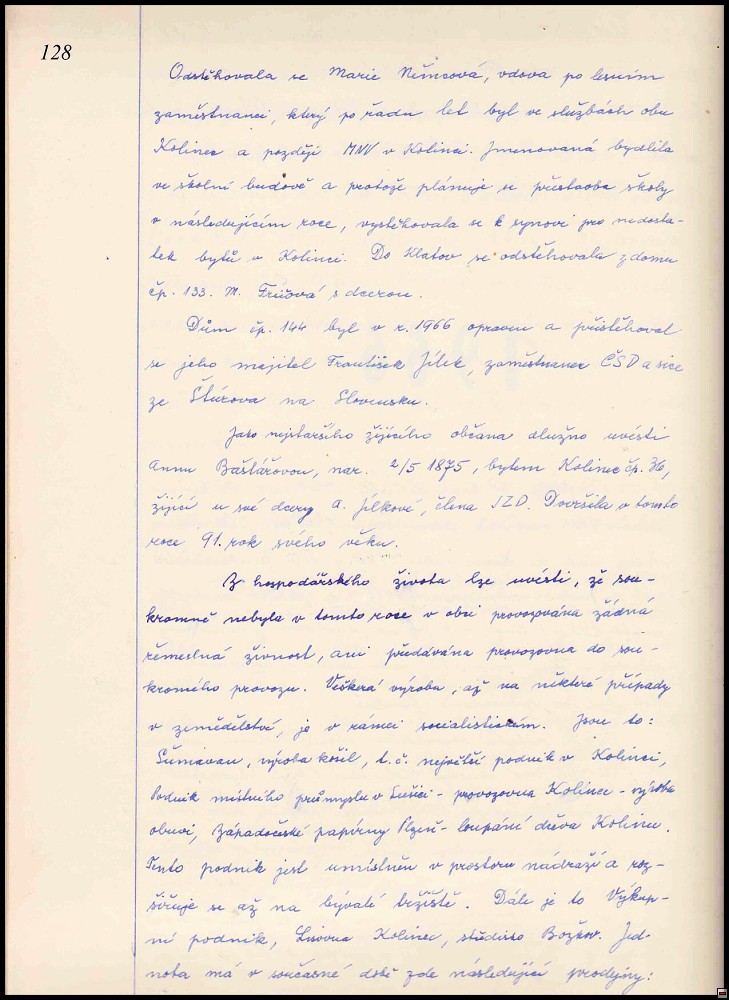 128
Odstěhovala se Marie Němcová, vdova po lesním
zaměstnanci, který po řadu let byl ve službách obce
Kolinec a později MNV v Kolinci. Jmenovaná bydlila
ve školní budově a protože plánuje se přístavba školy
v následujícím roce, vystěhovala se k synovi pro nedosta-
tek bytů v Kolinci. Do Klatov se odstěhovala z domu
čp. 133. M. s dcerou.
Dům čp. 144 byl v r. 1966 opraven a přistěhoval
se jeho majitel František Jílek, zaměstnanec ČSD a sice
ze Štúrova na Slovensku.
Jako nejstaršího žijícího občana dlužno uvésti
Annu Baštářovou, nar. 2/5 1875, bytem Kolinec čp. 36,
žijící u své dcery A. Jílkové, člena JZD. Dovršila v tomto
roce 91. rok svého věku.
Z hospodářského života lze uvésti, že sou-
kromně nebyla v tomto roce v obci provozována žádná
řemeslná živnost, ani předávána provozovna do sou-
kromého provozu. Veškerá výroba, až na některé případy
v zemědělství, je v rámci socialistickém. Jsou to:
Šumavan, výroba košil, t.č. největší podnik v Kolinci,
Podnik místního průmyslu v Sušici - provozovna Kolinec - výroba
obuvi, Západočeské papírny Plzeň - loupání dřeva Kolinec.
Tento podnik jest umístněn v prostoru nádraží a roz-
šiřuje se až na bývalé tržiště. Dále je to Výkup-
ní podnik, Lisovna Kolinec, středisko Božkov. Jed-
nota má v současné době zde následující prodejny: